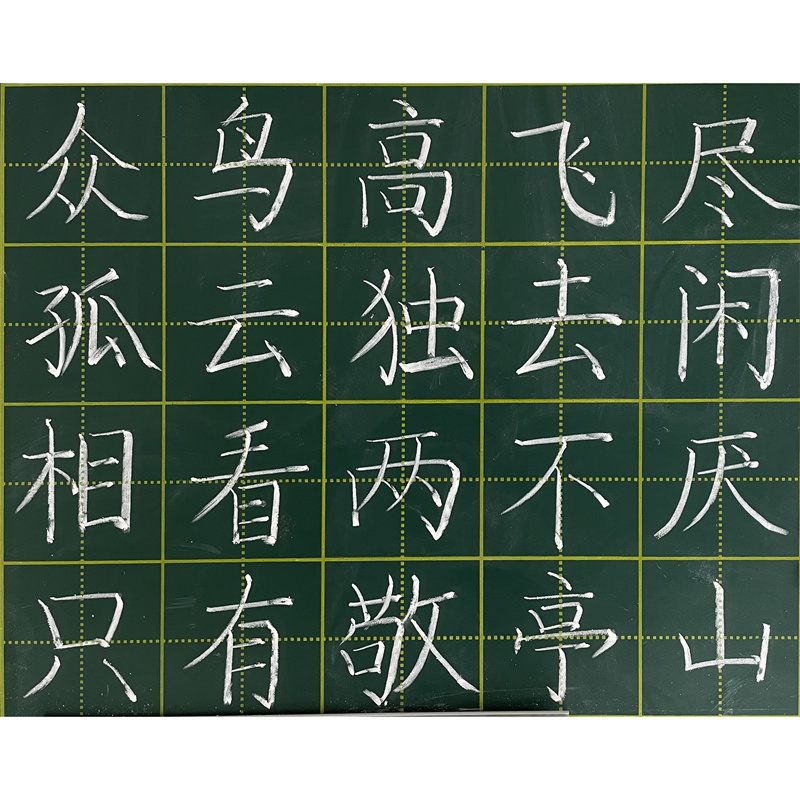 众鸟高飞尽
孤云独去闲
相看两不厌
只有敬亭山